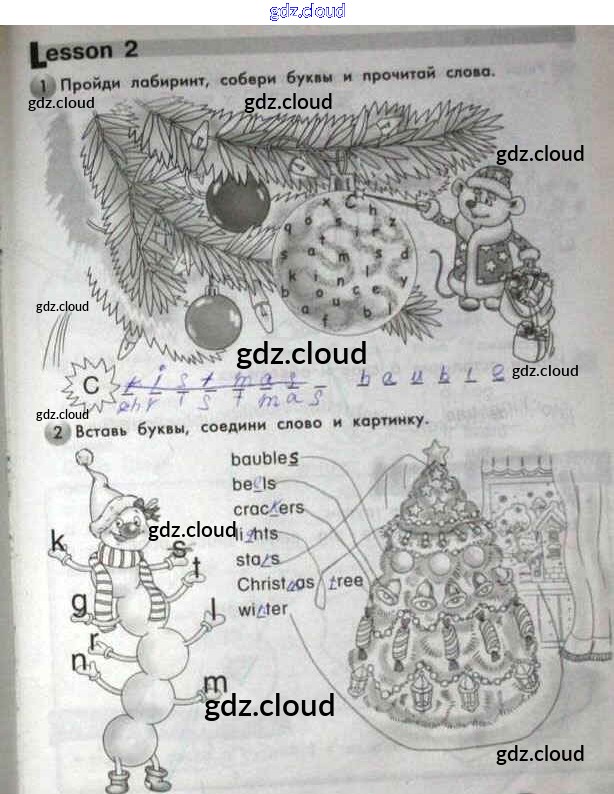 gdz.cloud
Lesson 2
1 Пройди лабиринт, собери буквы и прочитай слова.
gdz.cloud
gdz.cloud
gdz.cloud
x C h
q o s i r z
t
s a m s d
k i n l y
b o u c e
a f u b l
gdz.cloud
gdz.cloud
gdz.cloud
C ristmas bauble
christmas
gdz.cloud
2 Вставь буквы, соедини слово и картинку.
baubles
bells
crackers
gdz.cloud
lights
k s
stars
t
Christmas tree
g l
winter
r
n
m
gdz.cloud
gdz.cloud